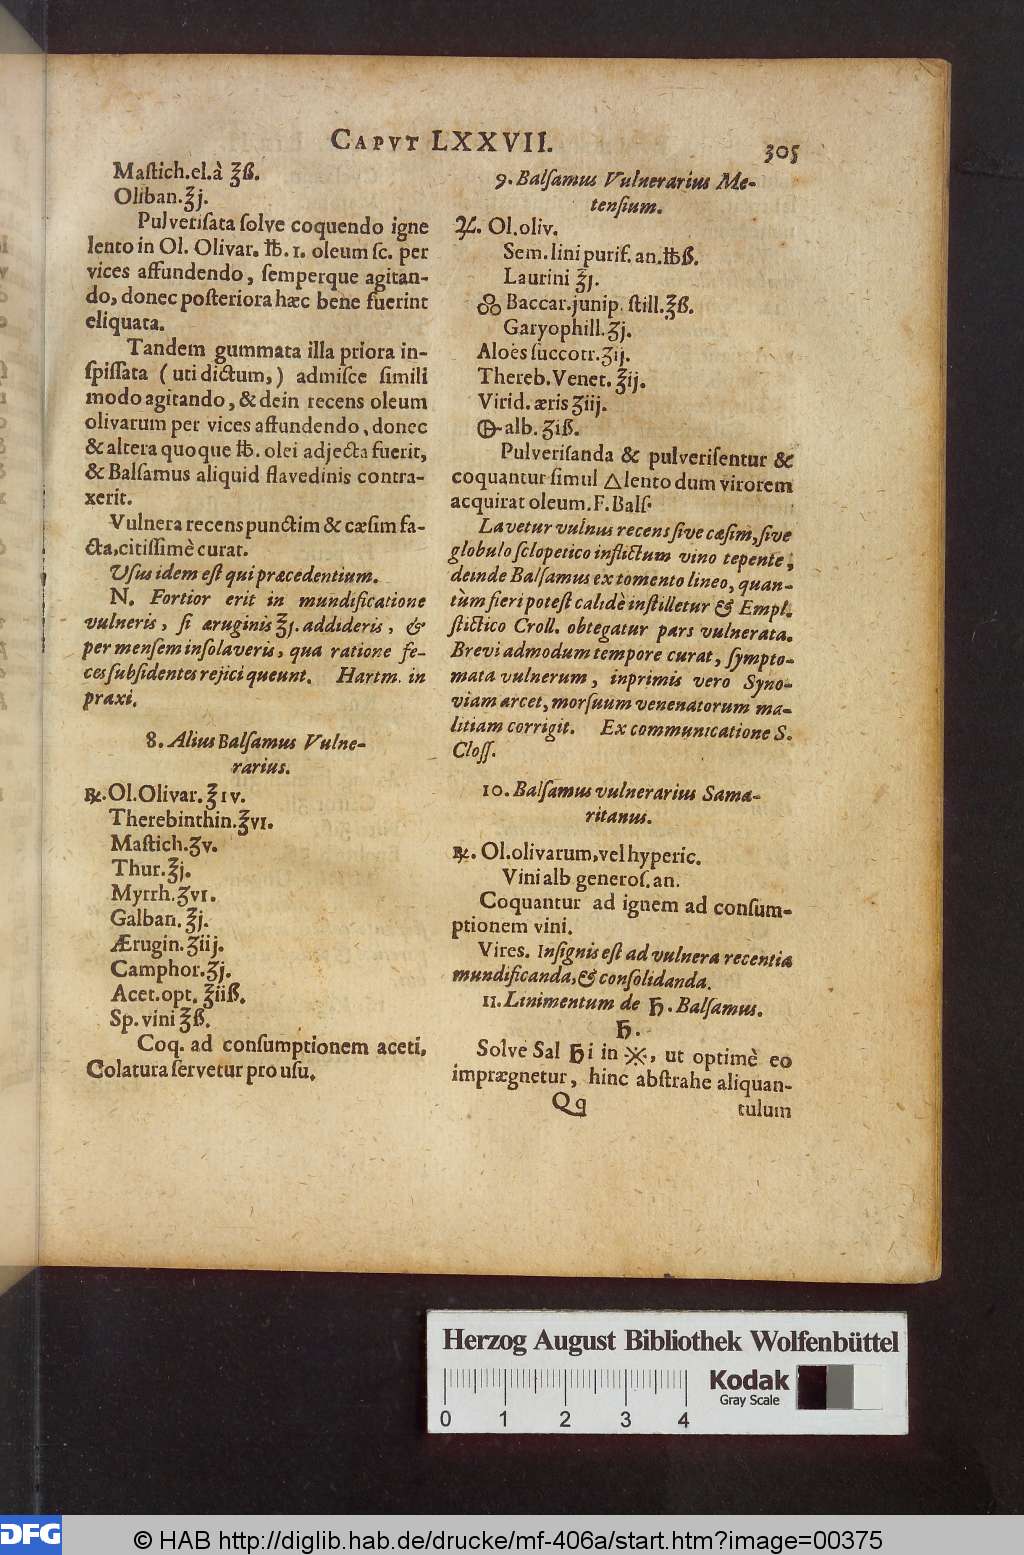 CAPVT LXXVII.
305
Maſtich.el.à ℥ß.
Oliban.℥j.
Pulveriſata ſolve coquendo igne
lento in Ol. Olivar. ℔. 1. oleum ſc. per
vices affundendo, ſemperque agitan-
do, donec poſteriora hæc bene fuerint
eliquata.
Tandem gummata illa priora in-
ſpiſſata (uti dictum,) admiſce ſimili
modo agitando, & dein recens oleum
olivarum per vices affundendo, donec
& altera quoque ℔. olei adjecta fuerit,
& Balſamus aliquid flavedinis contra-
xerit.
Vulnera recens punctim & cæſim fa-
cta, citiſſimè curat.
Uſus idem eſt qui præcedentium.
N. Fortior erit in mundificatione
vulneris, ſi æruginis ℥j. addideris, &
per menſem inſolaveris, qua ratione fe-
ces ſubſidentes rejici queunt. Hartm. in
praxi.
8. Alius Balſamus Vulne-
rarius.
℞. Ol. Olivar. ℥iv.
Therebinthin.℥vi.
Maſtich.ʒv.
Thur.℥j.
Myrrh.ʒvi.
Galban.℥j.
Ærugin.ʒiij.
Camphor.ʒj.
Acet.opt. ℥iiß.
Sp.vini ℥ß.
Coq. ad conſumptionem aceti,
Colatura ſervetur pro uſu.
9. Balſamus Vulnerarius Me-
tenſium.
♃. Ol.oliv.
Sem. lini purif. an.℔ß.
Laurini ℥j.
Baccar.junip. ſtill.℥ß.
Garyophill.ʒj.
Aloës ſuccotr.ʒij.
Thereb.Venet. ℥ij.
Virid. æris ʒiij.
alb. ʒiß.
Pulveriſanda & pulveriſentur &
coquantur ſimul △ lento dum virorem
acquirat oleum. F. Balſ.
Lavetur vulnus recens ſive cæſim, ſive
globulo ſclopetico inflictum vino tepente,
deinde Balſamus ex tomento lineo, quan-
tùm fieri poteſt calidè inſtilletur & Empl.
ſtictico Croll. obtegatur pars vulnerata.
Brevi admodum tempore curat, ſympto-
mata vulnerum, inprimis vero Syno-
viam arcet, morſuum venenatorum ma-
litiam corrigit. Ex communicatione S.
Cloſſ.
10. Balſamus vulnerarius Sama-
ritanus.
℞. Ol. olivarum, vel hyperic.
Vini alb generoſ. an.
Coquantur ad ignem ad conſum-
ptionem vini.
Vires. Inſignis eſt ad vulnera recentia
mundificanda, & conſolidanda.
11. Linimentum de ♄. Balſamus.
♄.
Solve Sal ♄i in ※., ut optimè eo
imprægnetur, hinc abſtrahe aliquan-
Qq
tulum
Herzog August Bibliothek Wolfenbüttel
Kodak
Gray Scale
0 1 2 3 4
DFG
© HAB http://diglib.hab.de/drucke/mf-406a/start.htm?image=00375